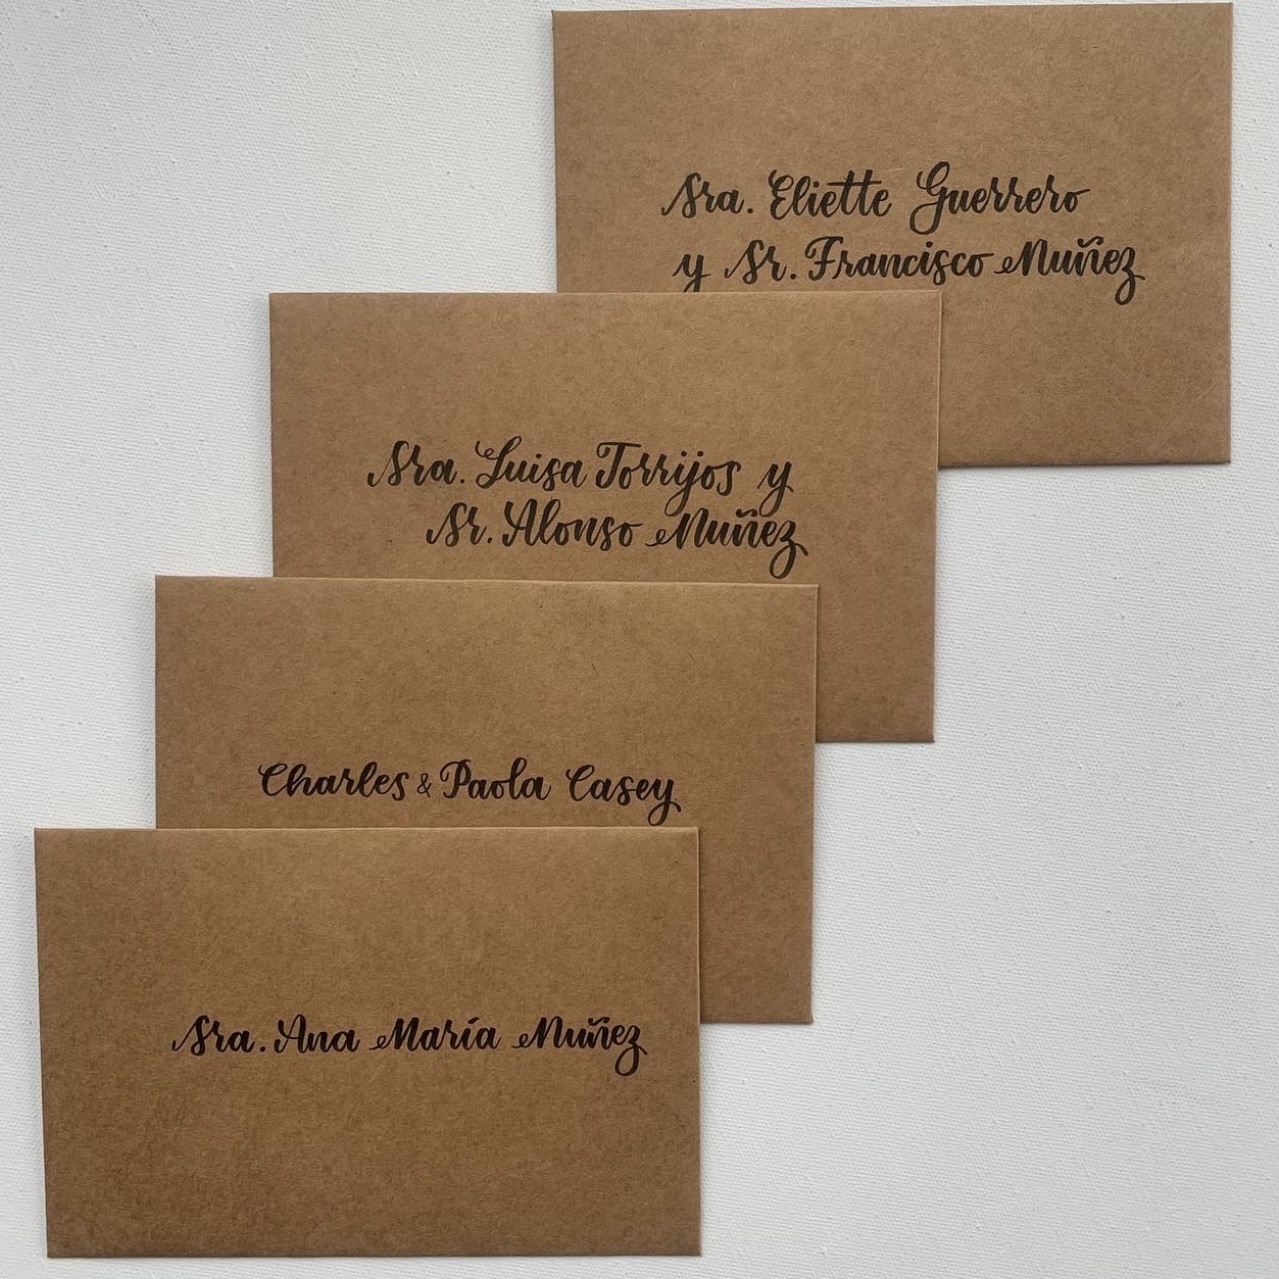 Sra. Eliette Guerrero
y Sr. Francisco Nuñez
Sra. Luisa Torrijos y
Sr. Alonso Nuñez
Charles & Paola Casey
Sra. Ana María Nuñez